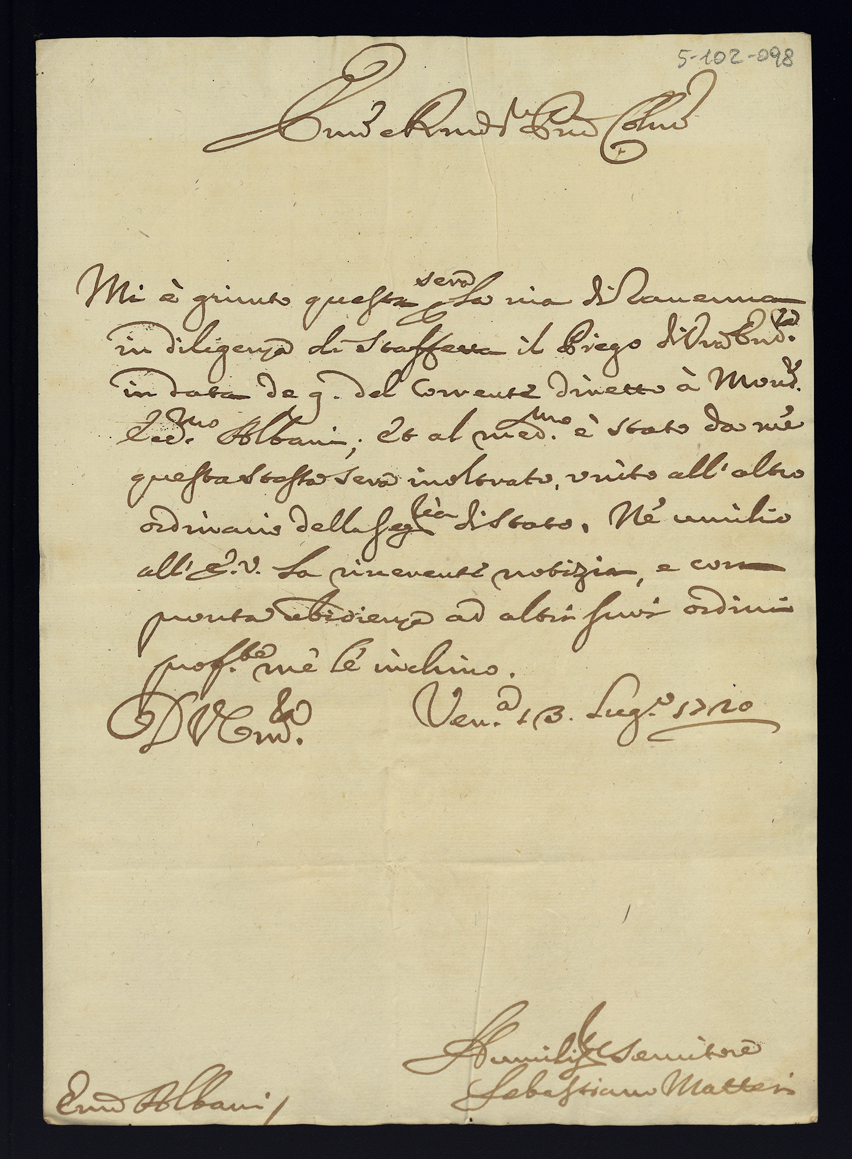 5-102-098
Em̃o e Rmõ Sre Prñ Colmõ
sera
Mi è giunto questa p la via di Rauenna
in diligenza di Staffetta il Piego di Vra Em.za
in data de 9. del Corrente diretto à Mons.r
Ecc.mo Albani; Et al med.mo è stato da mé
questa stessa sera inoltrato, unito all'altro
ordinario della Seg.ria di Stato. Né umilio
all'E.V. la riuerente notizia, e con
pronta ubidienza ad altri suoi ordini
prof.te mé lé inchino.
D V Em.za Ven.a 13. Lug.o 1720
Humiliss.o Seruitore
Sebastiano Matteri
Em̃o Albani /